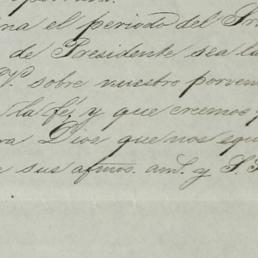 na el periodo del
de Presidente sea la
V. sobre nuestro porven
la fé, y que creemos
ra Dios que nos equi
e sus afmos. am.s y S. S